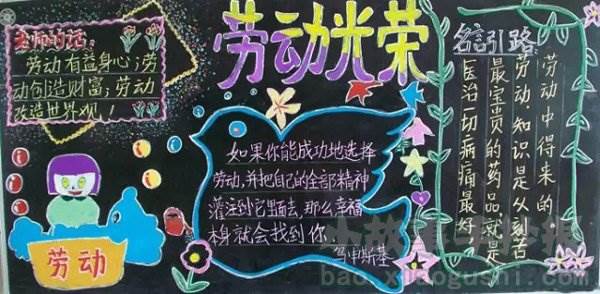 老师的话:
劳动有益身心;劳
动创造财富;劳动
改造世界观!
劳动光荣
如果你能成功地选择
劳动,并把自己的全部精神
灌注到它里面去,那么幸福
本身就会找到你.
乌申斯基
劳动
名言引路
医治一切病痛最好,
最宝贝的药品就是
劳动,知识是从刻苦
劳动中得来的
bao.xiaogushi.com